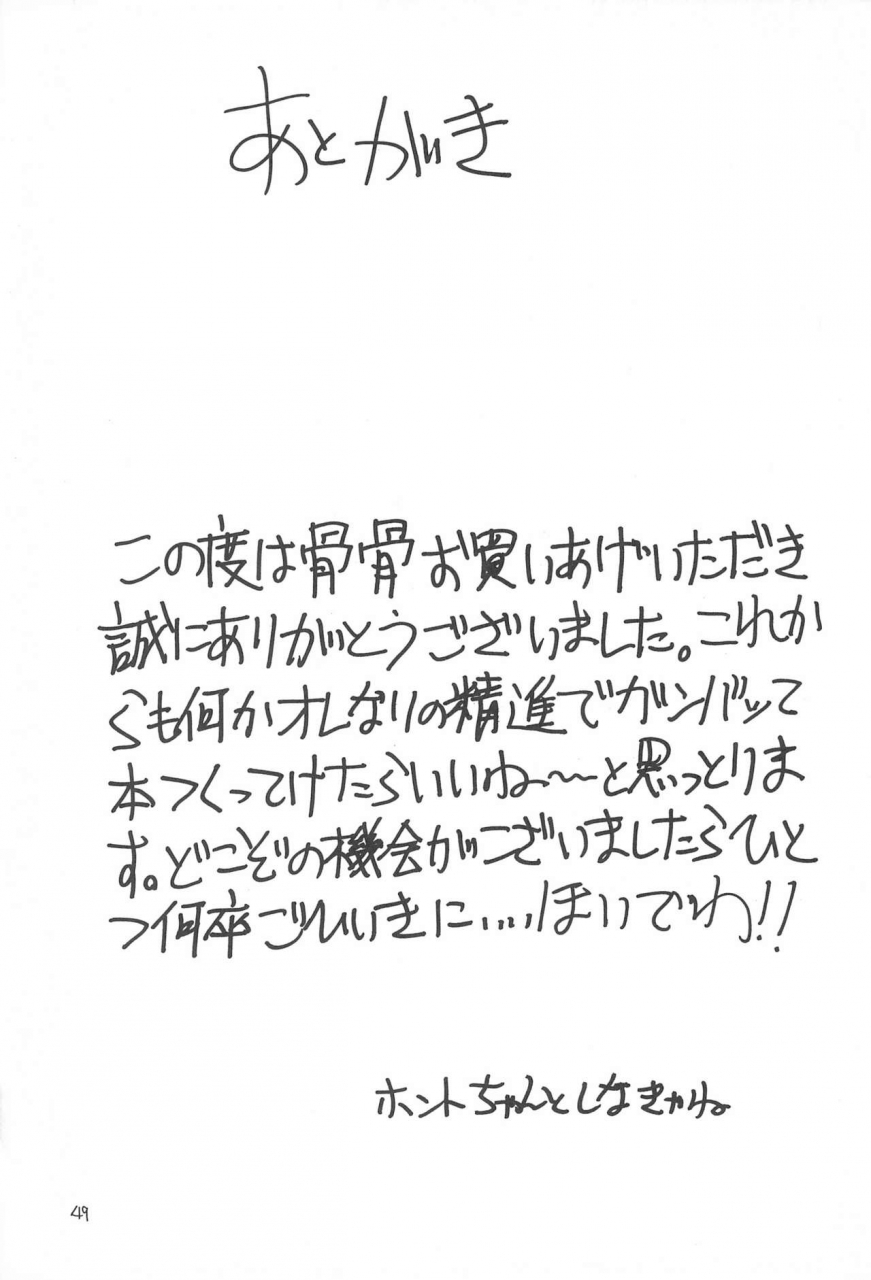 あとがき
この度は骨骨お買いあげいただき
誠にありがとうございました。これか
らも何かオレなりの精進でガンバッて
本つくってけたらいいね〜〜と思っとりま
す。どこぞの機会がございましたらひと
つ何卒ごひいきに....ほいでわ!!
ホントちゃんとしなきゃね
49